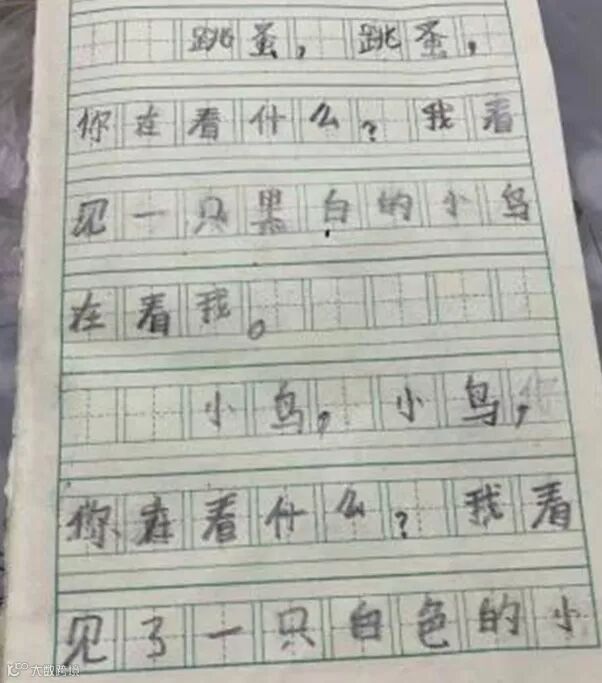 跳蚤，跳蚤，
你在看什么？我看
见一只黑白的小鸟
在看我。
小鸟，小鸟，你
你在看什么？我看
见了一只白色的小
大数跨境